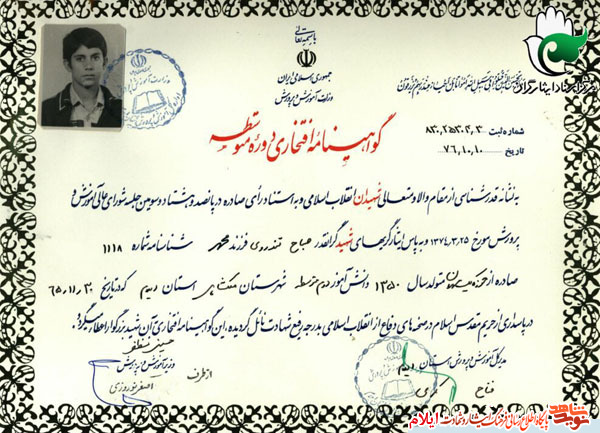 باسمه تعالی
جمهوری اسلامی ایران
وزارت آموزش و پرورش
شماره ثبت
تاریخ ۷۶,۱۰,۱۰
گواهینامه افتخاری دوره متوسطه
به نشانه قدرشناسی از مقام والا و متعالی شهیدان انقلاب اسلامی و به استناد رأی صادره در پانصد و هشتاد و سومین جلسه شورای عالی آموزش و
پرورش مورخ ۱۳۷۴,۳,۲۵ و به پاس ایثارگریهای شهید گرانقدر صباح تندروی فرزند محمد شناسنامه شماره ۱۱۱۸
صادره از حوزه متولد سال ۱۳۵۰ دانش آموز دوم متوسطه شهرستان ملکشاهی استان ایلام که در تاریخ ۶۵,۱۱,۲۰
در پاسداری از حریم مقدس اسلام در صحنه های دفاع از انقلاب اسلامی به درجه رفیع شهادت نائل گردیده، این گواهینامه افتخاری به آن شهید بزرگوار اعطا میگردد.
حسین مظفر
وزیر آموزش و پرورش
از طرف
اصغر نوروزی
مدیرکل آموزش و پرورش استان ایلام
فتاح کرمی
نوید شاهد پایگاه اطلاع رسانی فرهنگ ایثار و شهادت ایلام